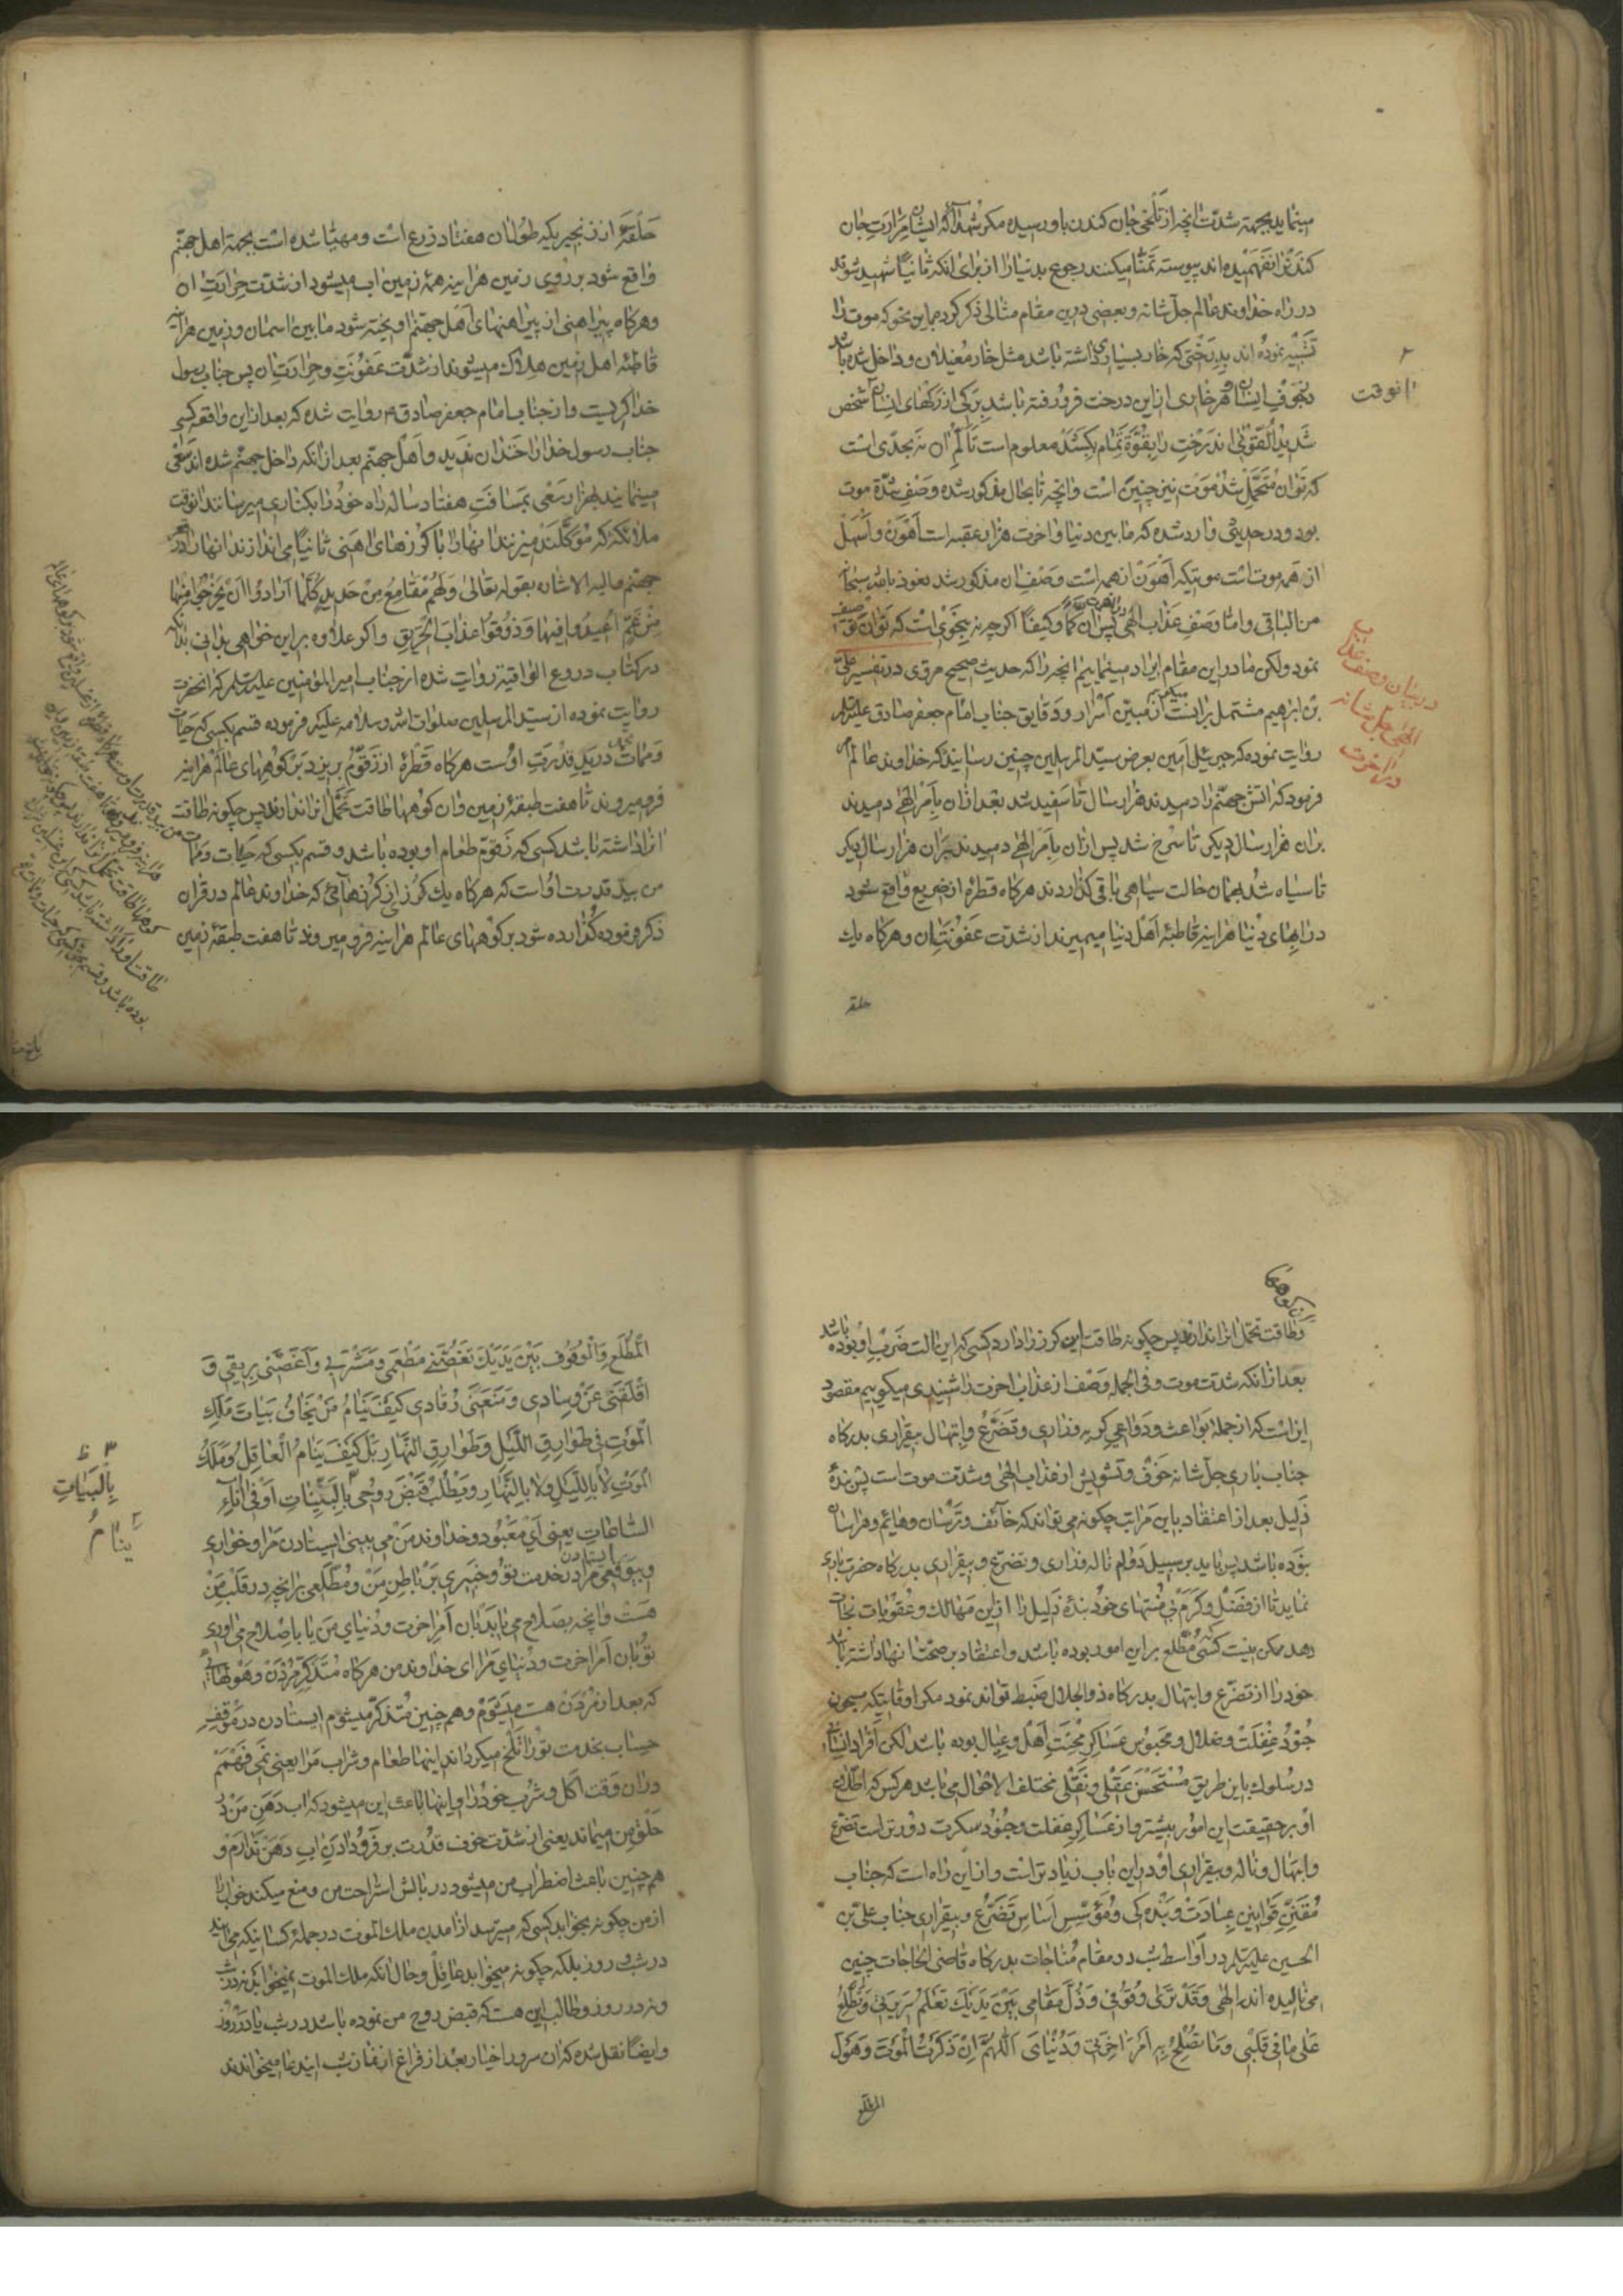 مینماید بجهة شدت انچه از تلخی جان کندن باو رسیده مکر شهدا که ایشان مرارت جان
کندن را نفهمیده اند پیوسته تمنا میکنند رجوع بدنیا را از برای انکه ثانیًا شهید شوند
در راه خداوند عالم جل شانه و بعضی درین مقام مثالی ذکر کرده باین نحو که موت را
تشبیه نموده اند بدرختی که خار بسیاری داشته باشد مثل خار مغیلان و داخل شده باشد
بجوف انسان و هر خاری از این درخت فرو رفته باشد برکی از رکهای انسان شخص
شدید القوتی اندرخت را بقوة تمام بکشد معلوم است تالم ان نه بحدی است
که توان متحمل شد موت نیز چنین است وانچه تابحال مذکور شده وصف شدة موت
بود و در حدیثی وارد شده که مابین دنیا واخرت هزار عقبه است اهون واسهل
از همه موت است موتیکه اهون از همه است وصف ان مذکور شد نعوذ بالله
من الباقی واما وصف عذاب الهی پس ان کمًا وکیفًا اکرچه نه بنحوی است که توان
نمود ولکن ما در این مقام ایراد مینماییم انچه را که حدیث صحیح مروی در تفسیر علی
بن ابراهیم مشتمل بران است از مبین اسرار و دقایق جناب امام جعفر صادق علیه السلام
روایت نموده که جبرئیل امین بعرض سید المرسلین چنین رسانید که خداوند عالم
فرمود که اتش جهنم را دمیدند هزار سال تا سفید شد بعد از ان بامر الهی دمیدند
بران هزار سال دیکر تا سرخ شد پس از ان بامر الهی دمیدند بران هزار سال دیکر
تا سیاه شد بهمان حالت سیاهی باقی کذاردند هرکاه قطرهٔ از ضریع واقع شود
در ابهای دنیا هراینه قاطبهٔ اهل دنیا میمیرند از شدت عفونت ان وهرکاه یک
حلقه
۲
انوقت
در بیان وصف عذاب
الهی جل شانه
در اخرت
حلقهٔ از زنجیریکه طول ان هفتاد ذرع است ومهیا شده است بجهة اهل جهنم
واقع شود بر روی زمین هراینه همهٔ زمین اب میشود از شدت حرارت ان
وهرکاه پیراهنی از پیراهنهای اهل جهنم اویخته شود مابین اسمان وزمین هراینه
قاطبهٔ اهل زمین هلاک میشوند از شدت عفونت وحرارت ان پس جناب رسول
خدا کریست و از جناب امام جعفر صادق ع روایت شده که بعد از این واقعه کسی
جناب رسول خدا را خندان ندید و اهل جهنم بعد از انکه داخل جهنم شده اند سعی
مینمایند بهزار سعی بمسافت هفتاد ساله راه خود را بکناری میرسانند انوقت
ملائکهٔ که موکلند میزنند انهارا با کرزهای اهنی ثانیًا می اندازند انها را در قعر
جهنم والیه الاشاره بقوله تعالی ولهم مقامع من حدید کلما ارادوا ان یخرجوا منها
من غم اعیدوا فیها وذوقوا عذاب الحریق واکر علاوه براین خواهی بدانی بدانکه
در کتاب دروع الواقیة روایت شده از جناب امیر المؤمنین علیه السلام که انحضرت
روایت نموده از سید المرسلین صلوات الله وسلامه علیه فرموده قسم بکسی که حیات
وممات محمد در ید قدرت اوست هرکاه قطرهٔ از زقوم بریزد بر کوههای عالم هراینه
فرو میروند تا هفت طبقهٔ زمین وان کوهها طاقت تحمل انرا ندارند پس چکونه طاقت
انرا داشته باشد کسی که زقوم طعام او بوده باشد و قسم بکسی که حیات وممات
من بید قدرت اوست که هرکاه یک کرز از کرزهائی که خداوند عالم در قران
ذکر فرموده کذارده شود بر کوههای عالم هراینه فرو میروند تا هفت طبقهٔ زمین
وطاقت تحمل انرا ندارند پس چکونه طاقت این کرز را دارد کسی که این الت ضرب او بوده باشد
بعد از انکه شدت موت وفی الجمله وصف از عذاب اخرت را شنیدی میکوییم مقصود
این است که از جملهٔ بواعث ودواعی کریه وزاری وتضرع وابتهال بیقراری بدرکاه
جناب باری جل شانه خوف وتشویش از عذاب الهی وشدت موت است پس بندهٔ
ذلیل بعد از اعتقاد باین مراتب چکونه می تواند که خائف وترسان وهائم وهراسان
بوده باشد پس باید بر سبیل دوام ناله وزاری وتضرع وبیقراری بدرکاه حضرت باری
نماید تا از فضل وکرم بی منتهای خود بندهٔ ذلیل را از این مهالک وعقوبات نجات
دهد ممکن نیست کسی که مطلع براین امور بوده باشد واعتقاد بر صحت انها داشته باشد
خود را از تضرع وابتهال بدرکاه ذوالجلال ضبط تواند نمود مکر اوقاتیکه مسجون
جنود غفلت وضلال ومحبوس عساکر محبت اهل وعیال بوده باشد لکن افراد انسان
در سلوک باین طریق مستحسن عقلی ونقلی مختلف الاحوال می باشد هرکس که اطلاع
او بر حقیقت این امور بیشتر واز عساکر غفلت وجنود سکرت دورتر است تضرع
وابتهال وناله وبیقراری او در این باب زیادتر است واز این راه است که جناب
مقنن قوانین عبادت وبندکی ومؤسس اساس تضرع وبیقراری جناب علی بن
الحسین علیه السلام در اواسط شب در مقام مناجات بدرکاه قاضی الحاجات چنین
می نالیده اند الهی وقد تری وقوفی وذل مقامی بین یدیک تعلم سریرتی وتطلع
علی مافی قلبی وما تصلح به امر اخرتی ودنیای اللهم ان ذکرت الموت وهول
المطلع
المطلع والوقوف بین یدیک تغصنی مطعمی ومشربی واغصنی بریقی و
اقلقنی عن وسادی ومنعنی رقادی کیف ینام من یخاف بیات ملک
الموت فی طوارق اللیل وطوارق النهار بل کیف ینام العاقل وملک
الموت لا باللیل ولا بالنهار ویطلب قبض روحی بالبینات او فی اناء
الساعات یعنی ای معبود وخداوند من می بینی ایستادن مرا وخواری
وبی وقعی مرا در ایستادن خدمت تو وخبیری بر باطن من ومطلعی برانچه در قلب من
هست وانچه بصلاح می اید بان امر اخرت ودنیای من یا باصلاح می اوری
تو بان امر اخرت ودنیای مرا ای خداوند من هرکاه متذکر مردن وهولهائی
که بعد از مردن هست میشوم وهم چنین متذکر میشوم ایستادن در موقف
حساب بخدمت تورا تلخ میکرداند اینها طعام وشراب مرا یعنی نمی فهمم
در ان وقت اکل وشرب خود را واینها باعث این میشود که اب دهن من در
حلق من میماند یعنی از شدت خوف قدرت بر فرو دادن اب دهن ندارم و
هم چنین باعث اضطراب من میشود در بالش استراحت من ومنع میکند خواب را
از من چکونه بخوابد کسی که میترسد از امدن ملک الموت در جملهٔ کسانیکه می ایند
در شب وروز بلکه چکونه میخوابد عاقل وحال انکه ملک الموت نمیخوابد نه در شب
ونه در روز وطالب این هست که قبض روح من نموده باشد در شب یا در روز
وایضًا نقل شده که ان سرور اخیار بعد از فراغ از نماز شب این دعا میخواندند
۳ ظ
بالبیات
ینام